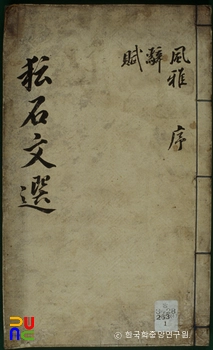 風雅 序
辭
賦
耘石文選
ⓒ한국학중앙연구원